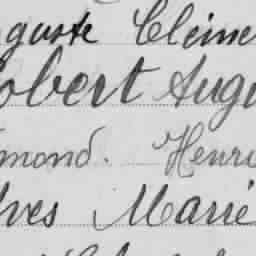 guste Cléme
obert Augu
mond. Henri
lves Marie